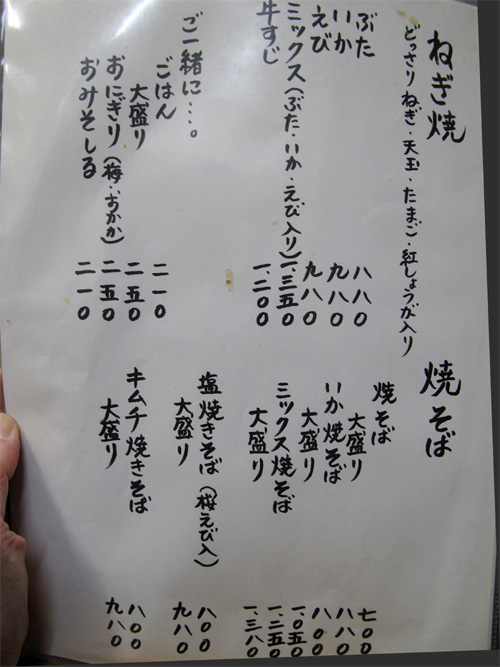 ねぎ焼
どっさりねぎ・天玉・たまご・紅しょうが入り
ぶた 八八〇
いか 九八〇
えび 九八〇
ミックス(ぶた・いか・えび入り) 一.三五〇
牛すじ 一.二〇〇
ご一緒に…。
ごはん 二一〇
大盛り 二五〇
おにぎり(梅・おかか) 二五〇
おみそしる 二一〇
焼そば
焼そば 七〇〇
大盛り 八八〇
いか焼そば 八〇〇
大盛り 一.〇五〇
ミックス焼そば 一.二五〇
大盛り 一.三八〇
塩焼きそば(桜えび入) 八〇〇
大盛り 九八〇
キムチ焼きそば 八〇〇
大盛り 九八〇